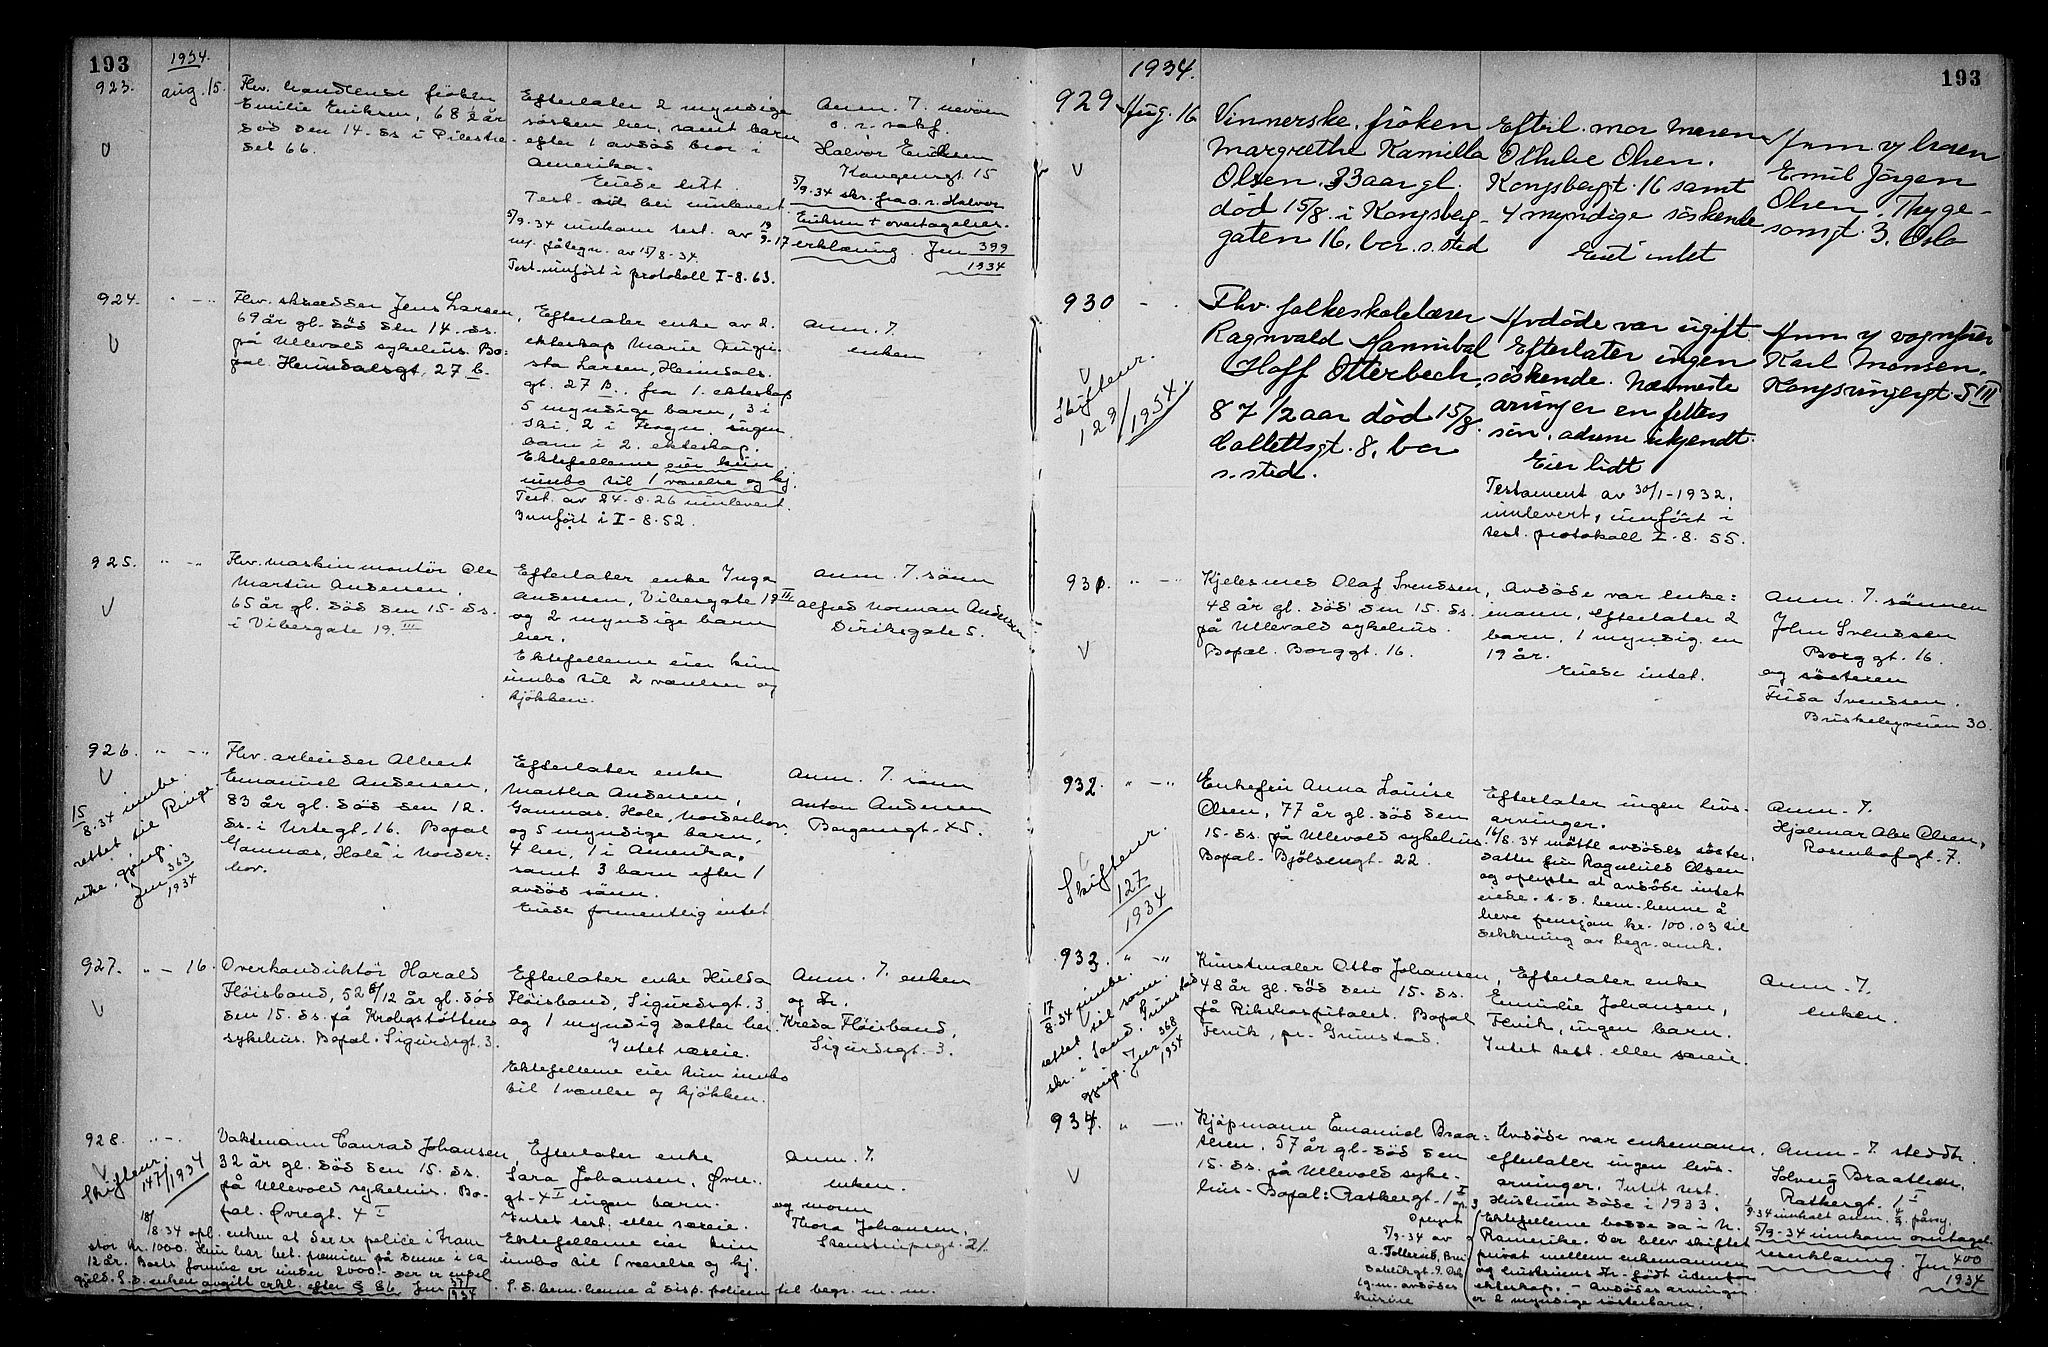 193
1934.
923.
aug. 15.
Fhv. handlende frøken
Emilie Eriksen, 68 år
død den 14. ds. i Pilestre-
det 66.
Efterlater 2 myndige
søsken her, samt barn
efter 1 avdød bror i
Amerika.
Eiede litt.
Test. blei innlevert
5/9.34 innkom test. av 19/9-17
m/ påtegn. av 15/8-34.
Test. innført i protokoll I-8.63.
Anm. 7. nevøen
o.r. sakf.
Halvor Eriksen
Kongensgt. 15
5/9.34 skr. fra o.r. Halvor
Eriksen + overtagelses-
erklæring. Jnr 399
1934
924.
" - "
Fhv. skredder Jens Larsen,
69 år gl. død den 14. ds.
på Ullevold sykehus. Bo-
pæl. Heimdalsgt. 27 b.
Efterlater enke av 2.
ekteskap Marie Augu-
sta Larsen, Heimdals-
gt. 27 B. fra 1. ekteskap
5 myndige barn, 3 i
Ski, 2 i Frogn, ingen
barn i 2. ekteskap.
Ektefellerne eier kun
innbo til 1 værelse og kj.
Test. av 24-8.26 innlevert.
Innført i I-8.52.
Anm. 7.
enken
925.
" - "
Fhv. maskinmontør Ole
Martin Andersen,
65 år gl. død den 15. ds.
i Vibesgate 19. III
Efterlater enke Inga
Andersen, Vibesgate 19 III
og 2 myndige barn
her.
Ektefellerne eier kun
innbo til 2 værelser og
kjøkken.
Anm. 7. sønn
Alfred Norman Andersen
Diriksgate 5.
926.
" - "
15/8.34 innbe-
rettet til Ringe-
rike, gjenp.
Jnr 363
1934
Fhv. arbeider Albert
Emanuel Andersen,
83 år gl. død den 12.
ds. i Urtegt. 16. Bopæl
Gamnæs, Hole i Norder-
hov.
Efterlater enke
Martha Andersen,
Gamnæs, Hole, Norderhov,
og 5 myndige barn,
4 her, 1 i Amerika,
samt 3 barn efter 1
avdød sønn.
Eiede formentlig intet
Anm. 7. sønn
Anton Andersen
Borgensgt. 45.
927.
" - 16.
Overkonduktør Harald
Fløisbond, 52 6/12 år gl. død
den 15. ds. på Krohgstøttens
sykehus. Bopæl. Sigurdsgt. 3.
Efterlater enke Hulda
Fløisbond, Sigurdsgt. 3
og 1 myndig datter her.
Intet særeie.
Ektefellerne eier kun innbo
til 1 værelse og kjøkken.
Anm. 7. enken
og dtr.
Kreda Fløisbond,
Sigurdsgt. 3.
928.
" - "
Skifteur.
147/1934
Vaktmann Conrad Johansen
32 år gl. død den 15. ds.
på Ullevold sykehus. Bo-
pæl. Øvregt. 4 I
Efterlater enke
Sara Johansen, Øvre-
gt. 4 I ingen barn.
Intet test. eller særeie.
Ektefellerne eier kun
innbo til 1 værelse og kj.
Anm. 7.
enken.
og moren
Thora Johansen,
Steenstrupsgt. 21.
18/8.34 opl. enken at der er police i Fram
stor kr. 1000. Hun har bet. premien på denne i ca
12 år. Boets formue er under 2000.- der er endel
gjeld. S.d. enken avgitt erkl. efter § 86 Jnr 371/1934
S.d. bem. henne å disp. policen til begr. m.m.
1934.
193
929
Aug. 16
Vinnerske, frøken
Margrethe Kamilla
Olsen. 33 aar gl.
død 15/8. i Kongsberg-
gaten 16, bor s. sted
Eftl. mor Maren
Othilie Olsen.
Kongsbergt. 16 samt
4 myndige søskende
Eiet intet
Anm v/ broren
Emil Jørgen
Olsen, Thyge-
sonsgt. 3. Oslo
930
- .
Skifteur.
129/1934.
Fhv. folkeskolelærer
Ragnvald Hannibal
Hoff Otterbech,
87 1/2 aar død 15/8.
Collettsgt. 8, bor
s. sted.
Avdøde var ugift.
Efterlater ingen
søskende. Nærmeste
arving er en fetters
søn, adresse ukjendt.
Eier lidt
Testament av 30/1-1932.
innlevert, innført i
test. protokoll I-8. 55.
Anm v/ vognfører
Karl Monsen.
Kongsvingergt. 5 III
931.
" - "
Kjelesmed Olaf Svendsen,
48 år gl. død den 15. ds.
på Ullevold sykehus.
Bopæl. Borggt. 16.
Avdøde var enke-
mann, efterlater 2
barn, 1 myndig, en
19 år.
Eiede intet.
Anm. 7. sønnen
John Svendsen
Borggt. 16.
og søsteren
Frida Svendsen.
Briskebyveien 30.
932.
" - "
Skifteur.
127/1934
Enkefru Anna Louise
Olsen, 77 år gl. død den
15. ds. på Ullevold sykehus.
Bopæl. Bjølsengt. 22.
Efterlater ingen livs-
arvinger.
16/8.34 møtte avdødes søster-
datter fru Ragnhild Olsen
og oplyste at avdøde intet
eiede. s.d. bem. henne å
heve pensjon kr. 100.03 til
dekkning av begr. omk.
Anm. 7.
Hjalmar Alex Olsen,
Rosenhofgt. 7.
933.
" - "
17/8.34 innbe-
rettet til soren-
skr. i Sand, Grimstad
gjenp. Jnr 368
1934
Kunstmaler Otto Johansen,
48 år gl. død den 15. ds.
på Rikshospitalet. Bopæl
Fevik, pr. Grimstad.
Efterlater enke
Emilie Johansen,
Fevik, ingen barn.
Intet test. eller særeie.
Anm. 7.
enken.
934.
" - "
Kjøpmann Emanuel Braa-
then, 57 år gl. død den
15. ds. på Ullevold syke-
hus. Bopæl: Ratkergt. 1 I
Avdøde var enkemann,
efterlater ingen livs-
arvinger. Intet test.
Hustruen døde i 1933.
Oplyst
5/9-34 av
A. Tollersb,
av avdødes
kusine
Ektefellerne bodde da i N.
Amerika. Der blev skiftet
privat mellem enkemannen
og hustruens dtr. født utenfor
ekteskap. - Avdødes arvinger
er 2 myndige søsterbarn.
Anm. 7. steddtr.
Solveig Braathen,
Ratkergt. 1 I
5/9-34 innkom overtagel-
seserklæring. Jnr 400
1934